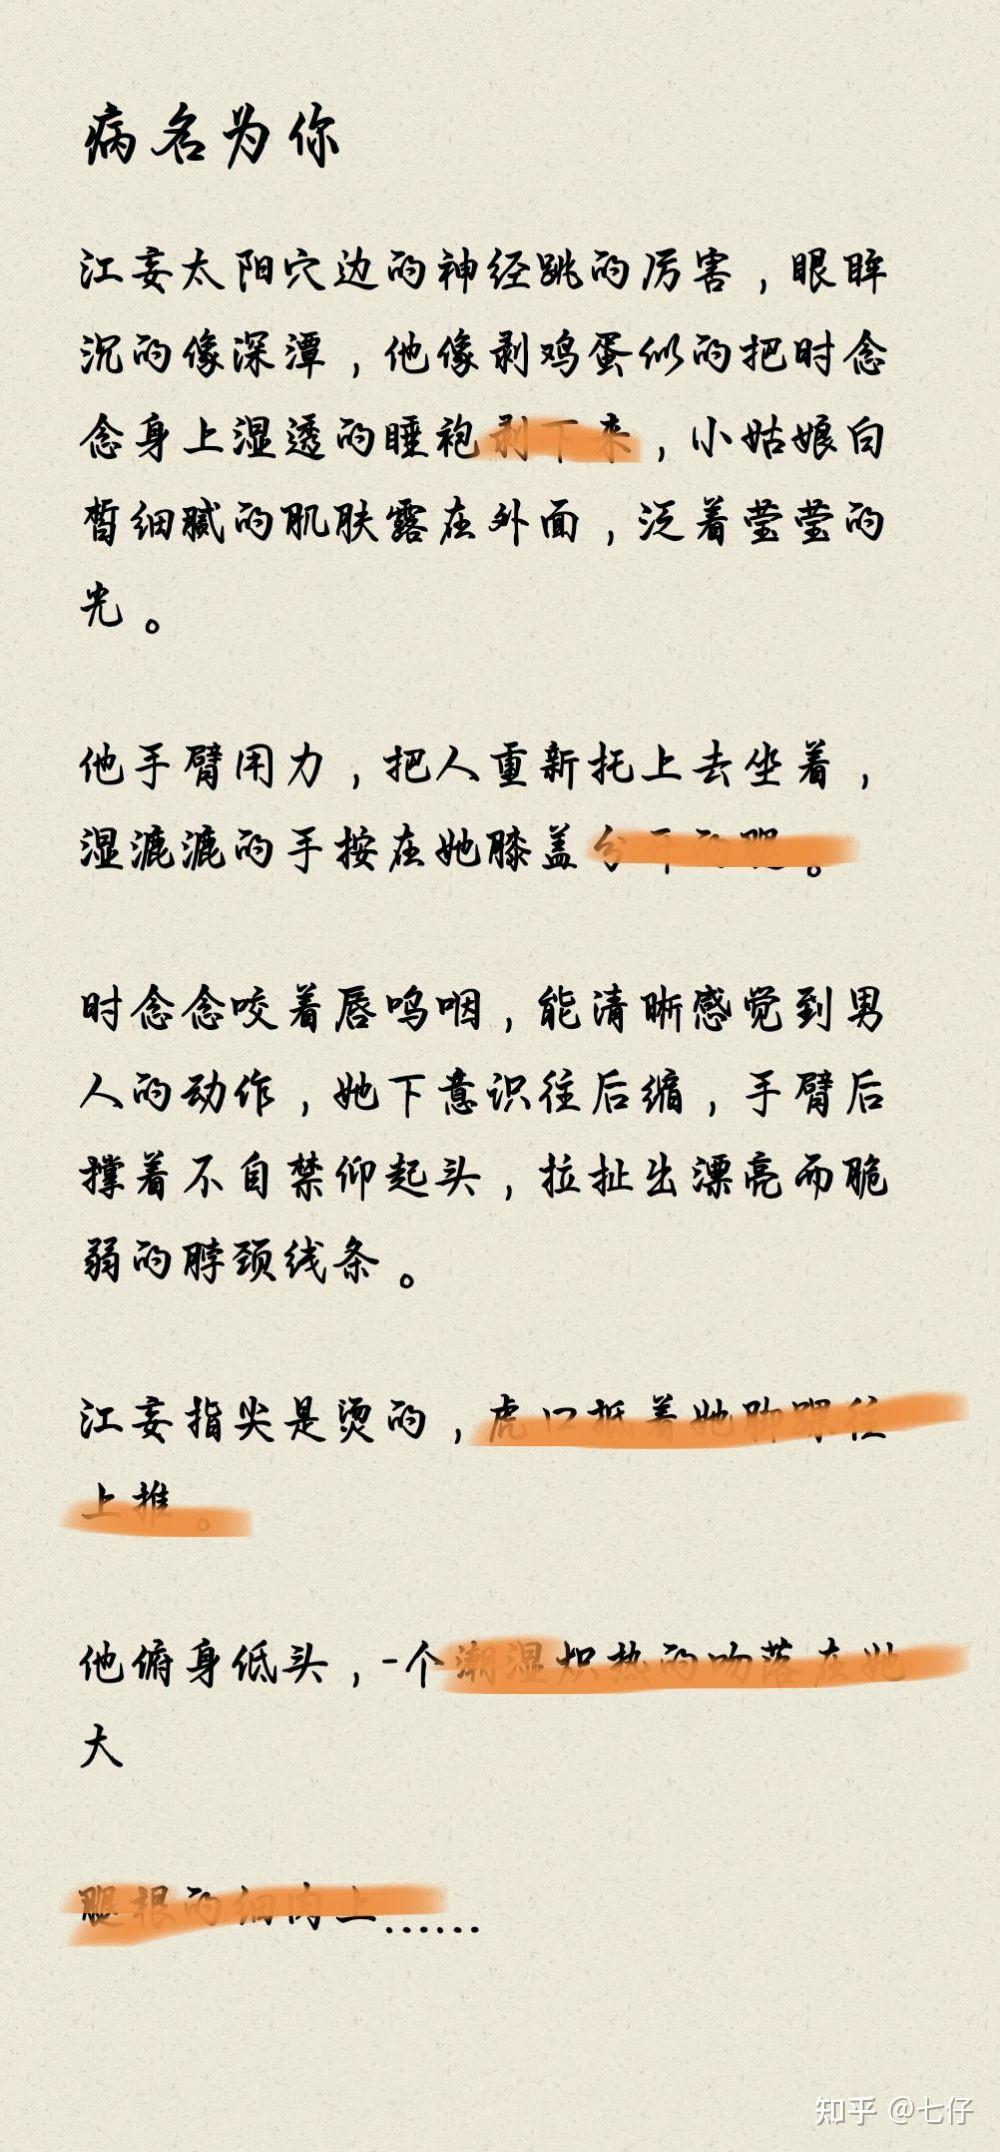 病名为你
江妄太阳穴边的神经跳的厉害，眼眸
沉的像深潭，他像剥鸡蛋似的把时念
念身上湿透的睡袍剥下来，小姑娘白
皙细腻的肌肤露在外面，泛着莹莹的
光。
他手臂用力，把人重新托上去坐着，
湿漉漉的手按在她膝盖
时念念咬着唇呜咽，能清晰感觉到男
人的动作，她下意识往后缩，手臂后
撑着不自禁仰起头，拉扯出漂亮而脆
弱的脖颈线条。
江妄指尖是烫的，虎口抵着她脚踝往
上推。
他俯身低头，-个潮湿炽热的吻落在她
大
腿根的细肉上......
知乎 @七仔